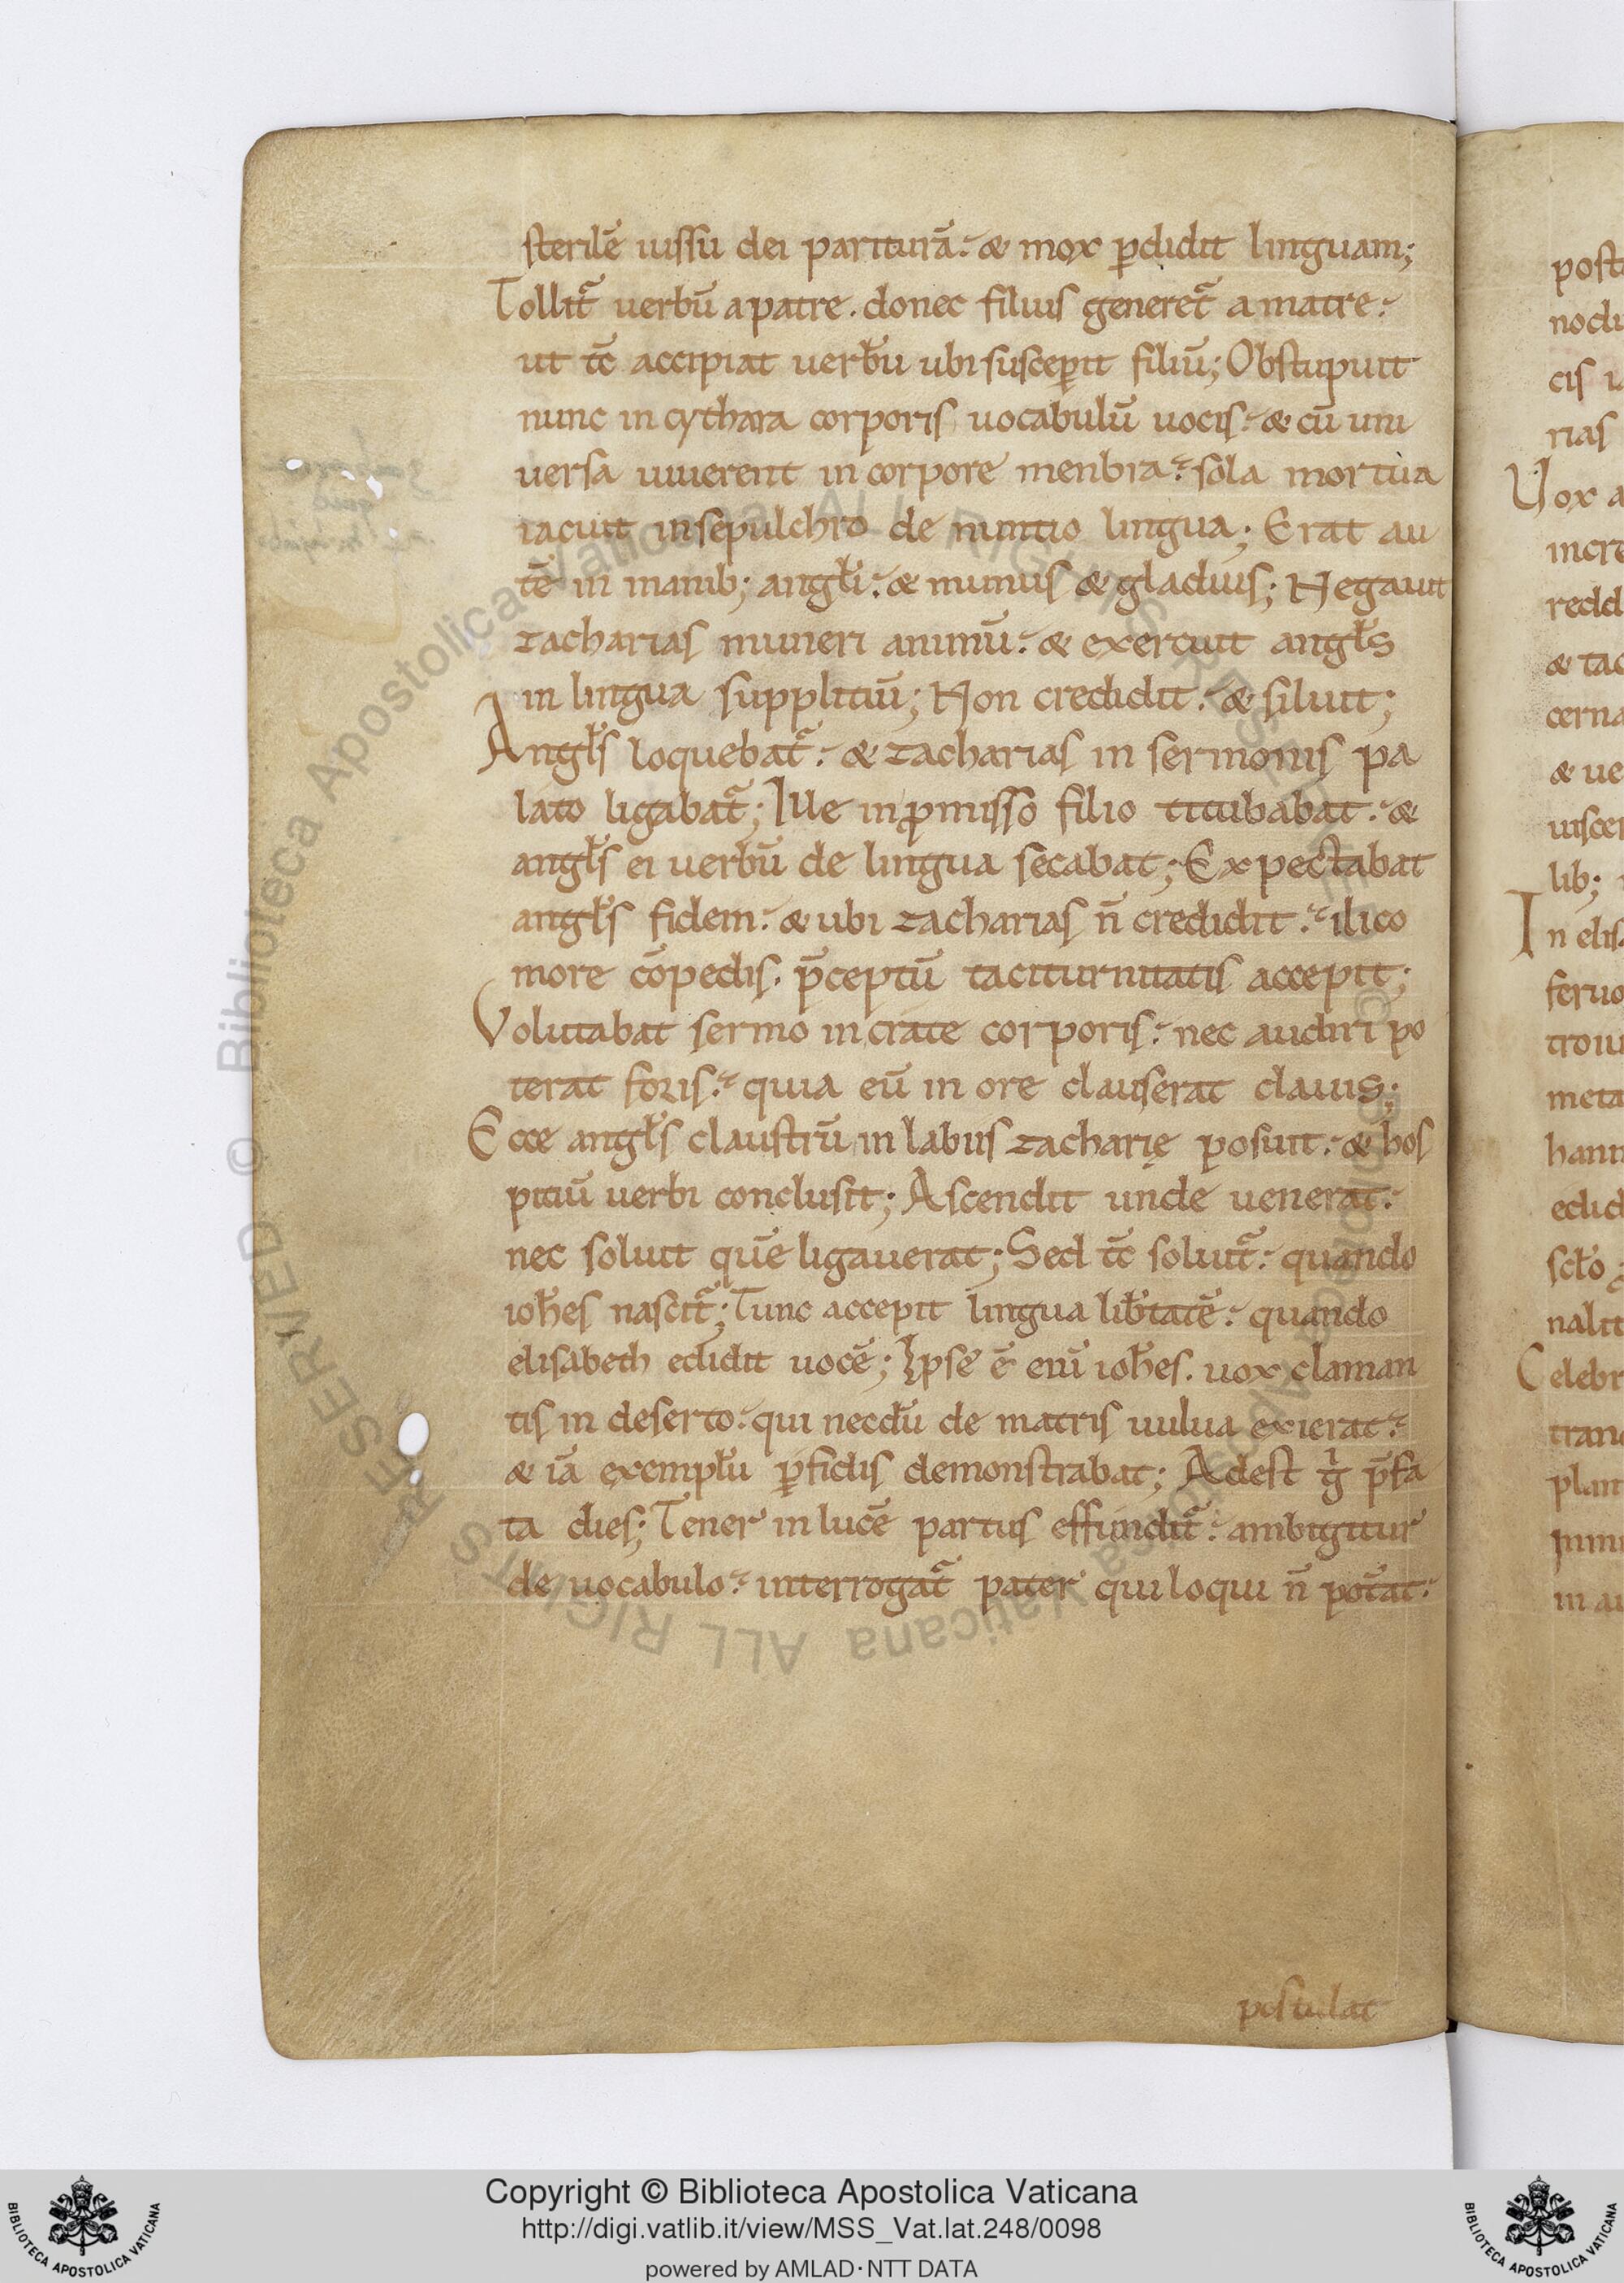 sterilē iussu dei pariturā. & mox ꝑdidit linguam;
Tollit᷑ uerbū a patre. donec filius generet᷑ a matre.
ut tc̄ accipiat uerbū ubi susceꝑit filiū; Obstupuit
nunc in cythara corporis uocabulū uocis. & cū uni
uersa uiuerent in corpore menbra. sola mortua
iacuit in sepulchro de nuntio lingua; Erat au
tē in manib; angl̄i. & munus & gladius; Negauit
zacharias muneri animū. & exercuit angl̄s
in lingua suppliciū; Non credidit. & siluit;
Angl̄s loquebat᷑. & zacharias in sermonis pa
lato ligabat᷑; Ille in ꝓmisso filio titubabat. &
angl̄s ei uerbū de lingua secabat; Expectabat
angl̄s fidem. & ubi zacharias n̄ credidit. ilico
more cōpedis. p̄ceptū taciturnitatis accepit;
Volutabat sermo in crate corporis. nec audiri po
terat foris. quia eū in ore clauserat clauis;
Ecce angl̄s claustrū in labiis zacharię posuit. & hos
pitiū uerbi conclusit; Ascendit unde uenerat.
nec soluit quē ligauerat; Sed tc̄ soluit᷑. quando
ioh̄es nascit᷑; Tunc accepit lingua lib̄tatē. quando
elisabeth edidit uocē; Ipse ē eni̅ ioh̄es. uox claman
tis in deserto. qui necdū de matris uulua exierat.
& iā exemplū ꝑfidis demonstrabat; Adest g̊ p̄fa
ta dies; Tener in lucē partus effundit᷑. ambigitur
de uocabulo. interrogat᷑ pater qui loqui n̄ pot̄at.
postulat
Copyright © Biblioteca Apostolica Vaticana
http://digi.vatlib.it/view/MSS_Vat.lat.248/0098
powered by AMLAD·NTT DATA
BIBLIOTECA APOSTOLICA VATICANA
BIBLIOTECA APOSTOLICA VATICANA
© Biblioteca Apostolica Vaticana ALL RIGHTS RESERVED